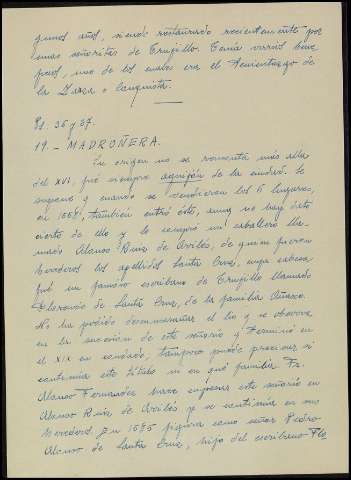 gunos años, siendo restaurado recientemente por
unas señoritas de Trujillo. Tenía varios
de los cuales era el
la Zarza o Conquista.
Pl. 36 y 37.
19.- MADROÑERA.
Su origen no se remonta más allá
del XVI, fué siempre de la ciudad. Se
supone que cuando se vendieron los 6 lugares,
en 1558, también entró éste, no hay dato
cierto de ello y lo compró un caballero lla-
mado Alonso Ruiz de Avilés, de quien fueron
herederos los apellidos Santa Cruz, cuya cabeza
fué un famoso escribano de Trujillo llamado
Florencio de Santa Cruz, de la familia Añasco.
No he podido desenmarañar el lío y se observa
en la sucesión de este señorío y terminó en
el XIX en condado, tampoco puedo precisar si
continúa este título ni en qué familia. Fr.
Alonso Fernández hace empezar este señorío en
Alonso Ruiz de Avilés y se continúa en sus
herederos. En 1585 figura como señor Pedro
Alonso de Santa Cruz, hijo del escribano Flo